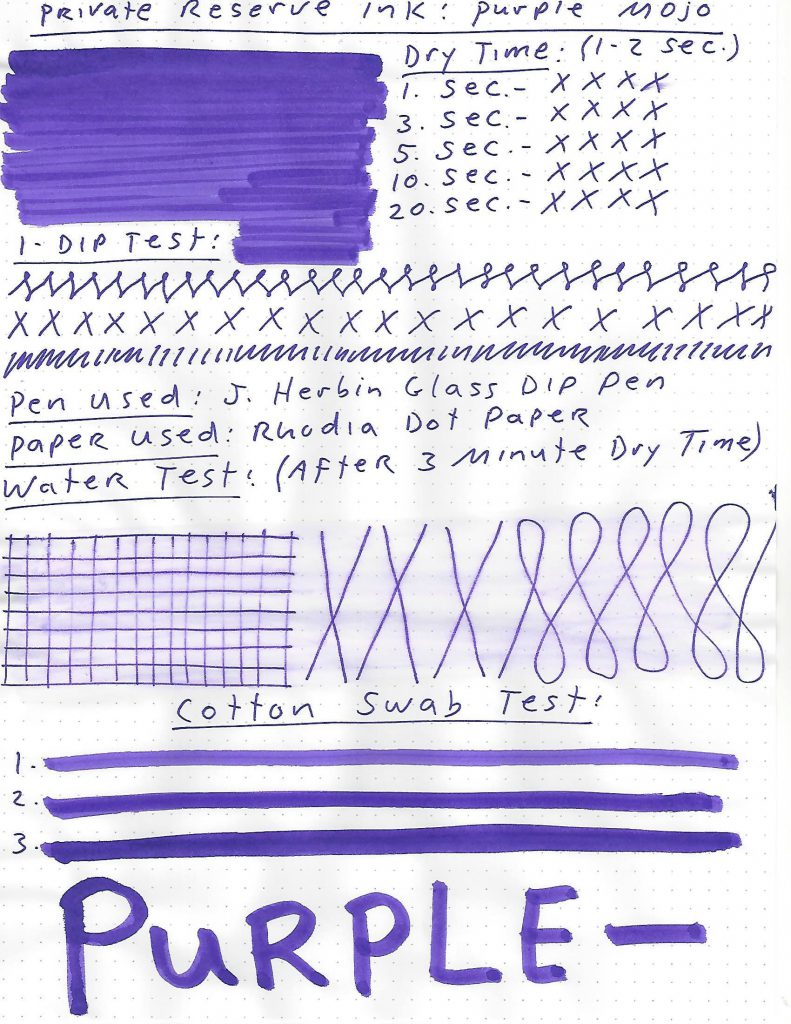 Private Reserve Ink: Purple Mojo
Dry Time: (1-2 sec.)
1. sec.- X X X X
3. sec.- X X X X
5. sec.- X X X X
10. sec.- X X X X
20. sec.- X X X X
1-Dip Test:
X X X X X X X X X X X X X X X X X X X X
Pen used: J. Herbin Glass Dip Pen
Paper used: Rhodia Dot Paper
Water Test: (After 3 Minute Dry Time)
X X X
Cotton Swab Test:
1.
2.
3.
PURPLE-